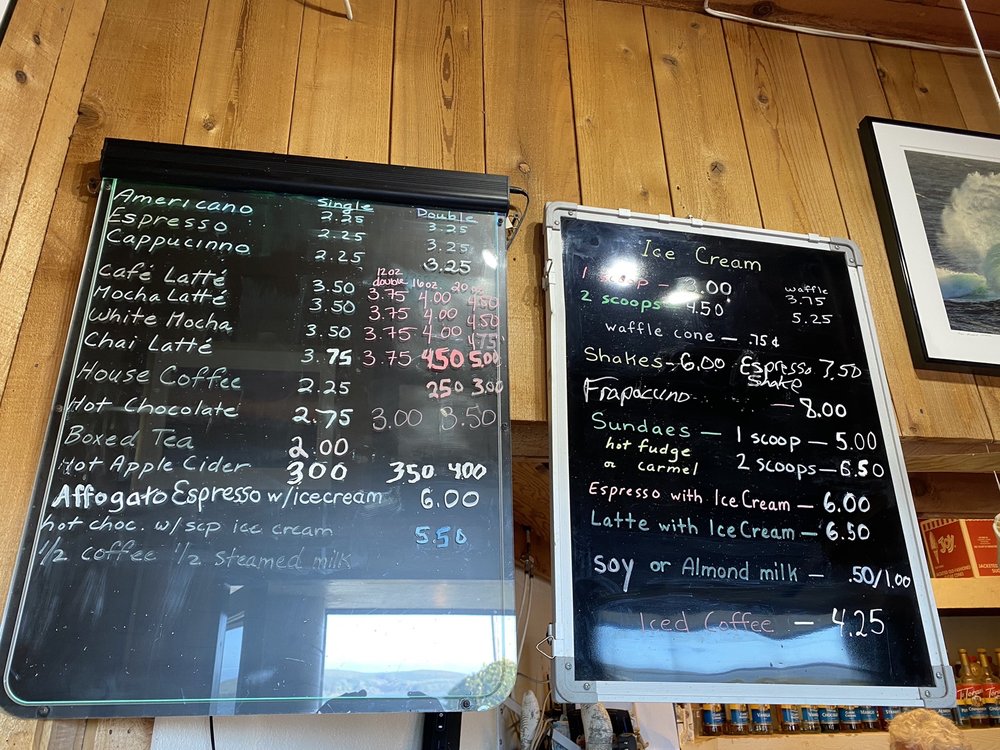 Single Double
Americano 2.25 3.25
Espresso 2.25 3.25
Cappucinno 2.25 3.25
12oz double 16oz. 20oz
Café Latté 3.50 3.75 4.00 4.50
Mocha Latté 3.50 3.75 4.00 4.50
White Mocha 3.50 3.75 4.00 4.75
Chai Latté 3.75 3.75 450 500
House Coffee 2.25 250 3.00
Hot Chocolate 2.75 3.00 3.50
Boxed Tea 2.00
Hot Apple Cider 300 350 400
Affogato Espresso w/icecream 6.00
hot choc. w/ scp ice cream 5.50
1/2 coffee 1/2 steamed milk
Ice Cream
waffle
1 scoop – 3.00 3.75
2 scoops – 4.50 5.25
waffle cone – .75¢
Shakes – 6.00 Espresso Shake 7.50
Frapacuno – 8.00
Sundaes – 1 scoop – 5.00
hot fudge
or carmel 2 scoops – 6.50
Espresso with Ice Cream – 6.00
Latte with Ice Cream – 6.50
soy or Almond milk – .50/1.00
Iced Coffee – 4.25
JOY